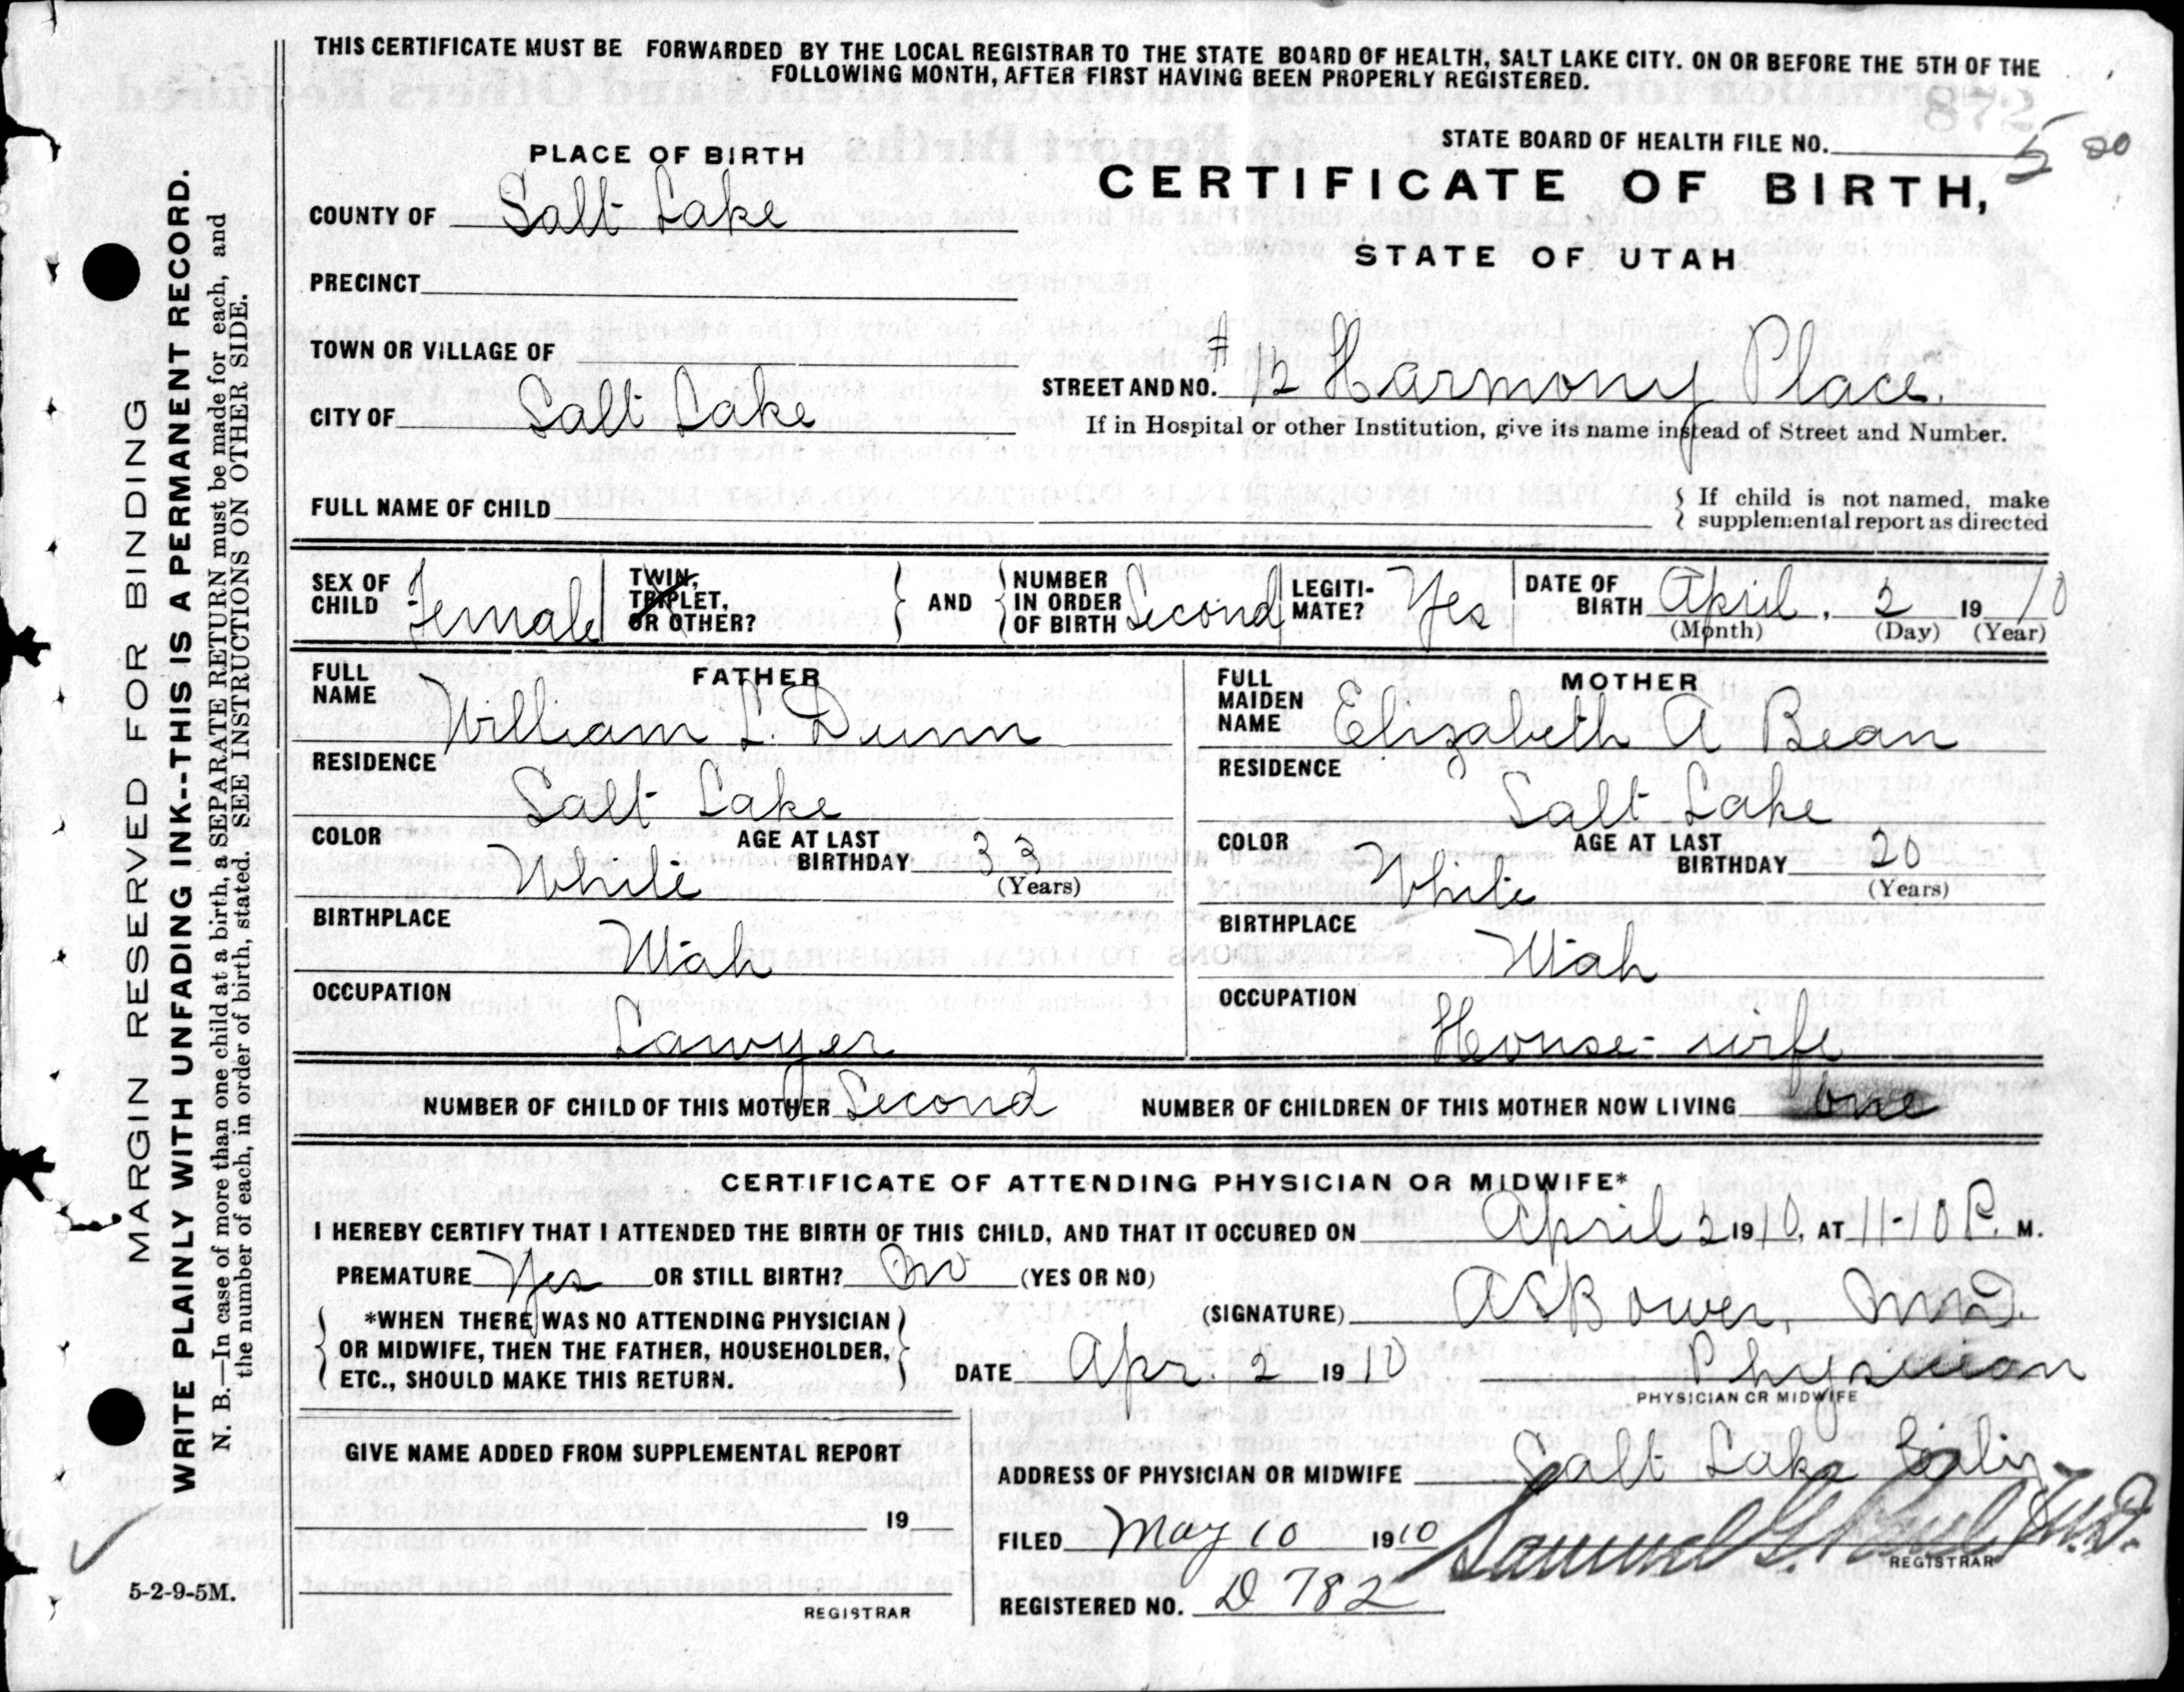 THIS CERTIFICATE MUST BE FORWARDED BY THE LOCAL REGISTRAR TO THE STATE BOARD OF HEALTH, SALT LAKE CITY. ON OR BEFORE THE 5TH OF THE
FOLLOWING MONTH, AFTER FIRST HAVING BEEN PROPERLY REGISTERED.
MARGIN RESERVED FOR BINDING
WRITE PLAINLY WITH UNFADING INK--THIS IS A PERMANENT RECORD.
N. B.—In case of more than one child at a birth, a SEPARATE RETURN must be made for each, and
the number of each, in order of birth, stated. SEE INSTRUCTIONS ON OTHER SIDE.
5-2-9-5M.
STATE BOARD OF HEALTH FILE NO. 5 20
CERTIFICATE OF BIRTH,
STATE OF UTAH
PLACE OF BIRTH
COUNTY OF Salt Lake
PRECINCT
TOWN OR VILLAGE OF
CITY OF Salt Lake
STREET AND NO. # 12 Harmony Place.
If in Hospital or other Institution, give its name instead of Street and Number.
FULL NAME OF CHILD
If child is not named, make
supplemental report as directed
SEX OF CHILD Female
TWIN, TRIPLET, OR OTHER?
AND
NUMBER IN ORDER OF BIRTH Second
LEGITI-MATE? Yes
DATE OF BIRTH April, 2 1910
(Month) (Day) (Year)
FATHER
FULL NAME William L. Dunn
RESIDENCE Salt Lake
COLOR White
AGE AT LAST BIRTHDAY 33
(Years)
BIRTHPLACE Utah
OCCUPATION Lawyer
MOTHER
FULL MAIDEN NAME Elizabeth A Bean
RESIDENCE Salt Lake
COLOR White
AGE AT LAST BIRTHDAY 20
(Years)
BIRTHPLACE Utah
OCCUPATION House-wife
NUMBER OF CHILD OF THIS MOTHER Second
NUMBER OF CHILDREN OF THIS MOTHER NOW LIVING One
CERTIFICATE OF ATTENDING PHYSICIAN OR MIDWIFE*
I HEREBY CERTIFY THAT I ATTENDED THE BIRTH OF THIS CHILD, AND THAT IT OCCURED ON April 2 1910, AT 11-10 P. M.
PREMATURE Yes OR STILL BIRTH? No (YES OR NO)
*WHEN THERE WAS NO ATTENDING PHYSICIAN
OR MIDWIFE, THEN THE FATHER, HOUSEHOLDER,
ETC., SHOULD MAKE THIS RETURN.
(SIGNATURE) A S Bower, M.D.
DATE Apr. 2 1910
Physician
PHYSICIAN OR MIDWIFE
GIVE NAME ADDED FROM SUPPLEMENTAL REPORT
19
REGISTRAR
ADDRESS OF PHYSICIAN OR MIDWIFE Salt Lake City
FILED May 10 1910 Samuel G. Paul M.D.
REGISTRAR
REGISTERED NO. D 782